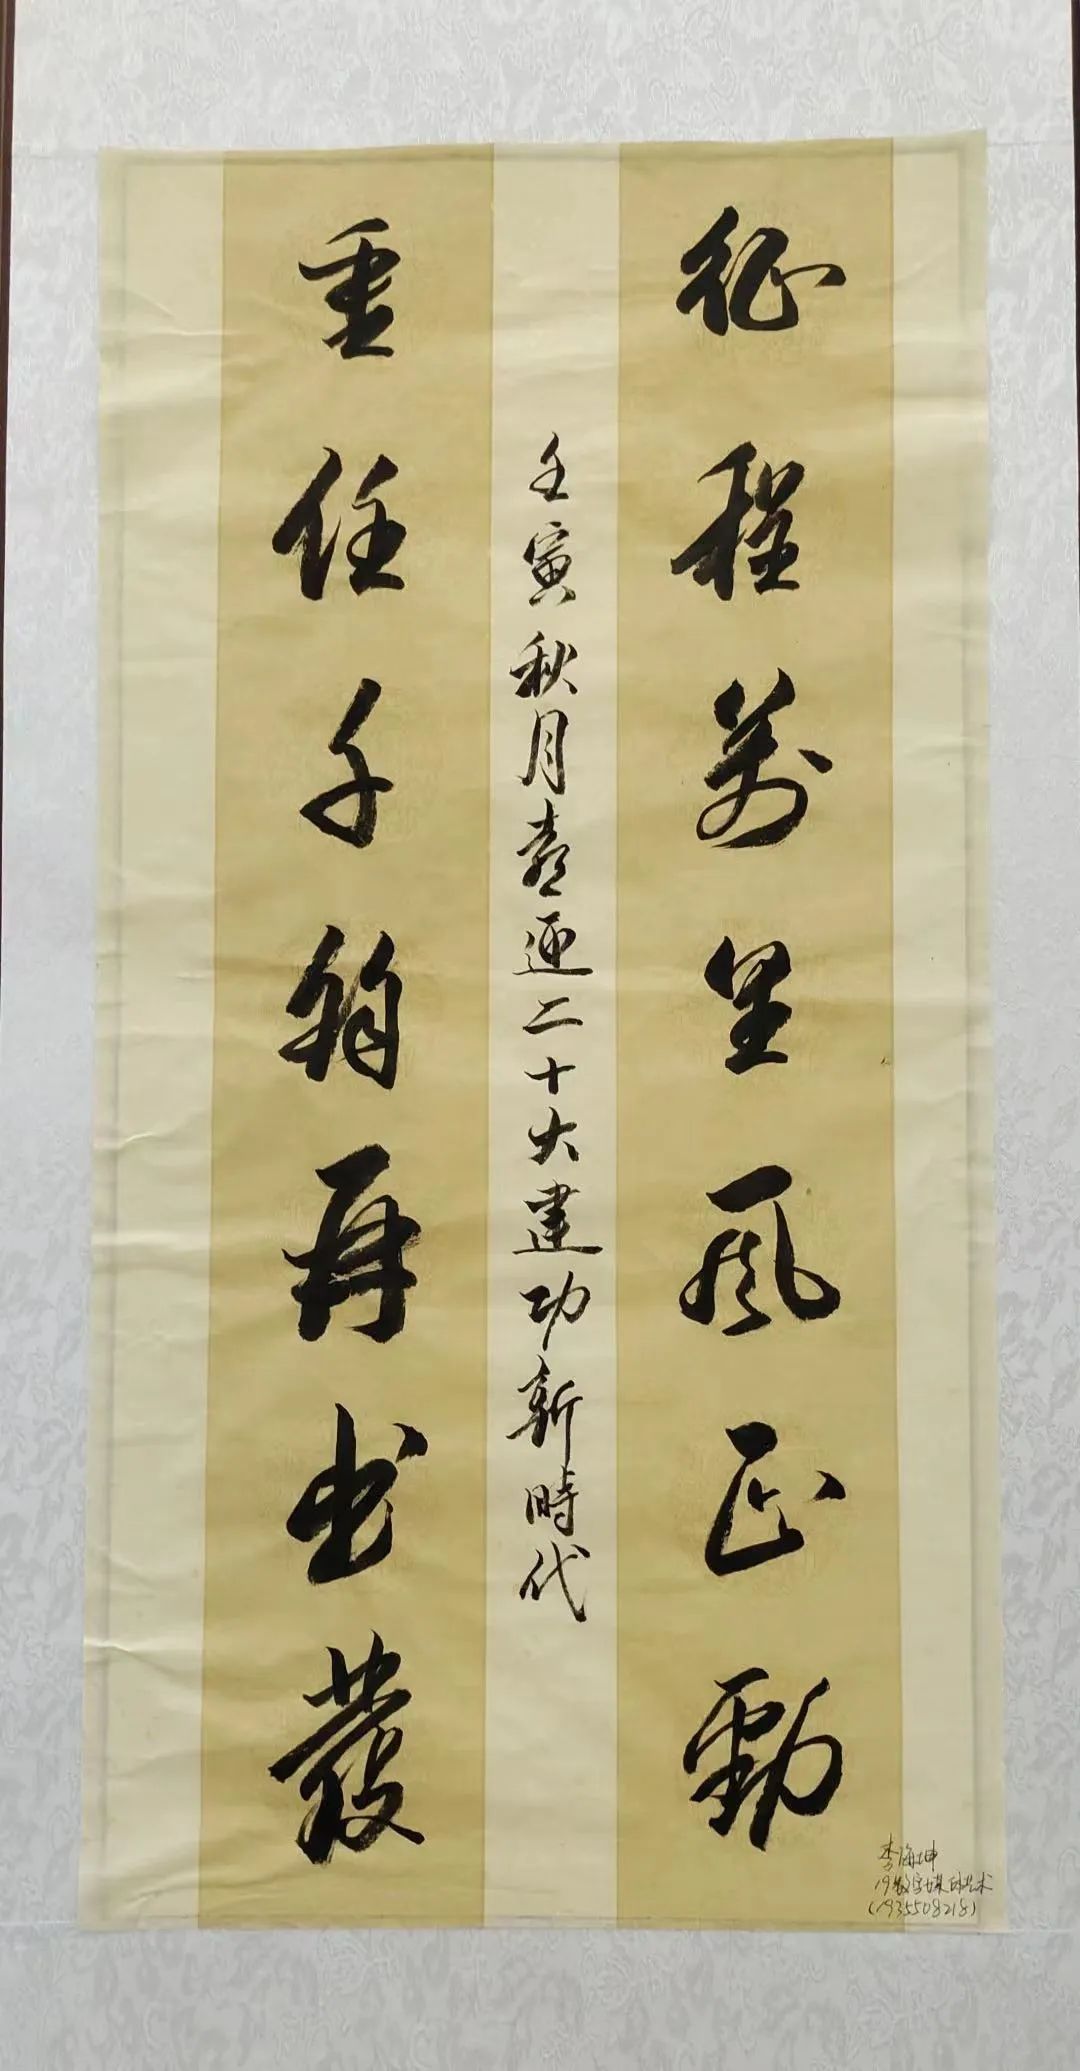 征程萬里風正勁
重任千鈞再出發
壬寅秋月喜迎二十大建功新時代
李海坤
19数字媒体艺术
(1935508218)